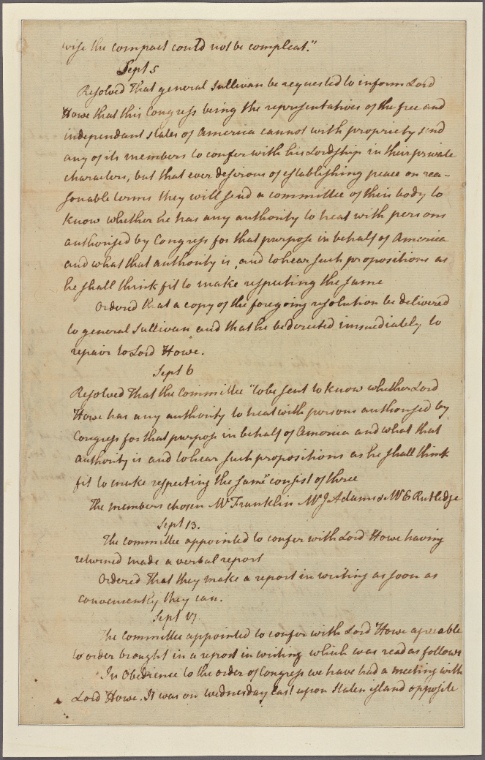 wise the compact could not be compleat."
Sept 5
Resolved That general Sullivan be requested to inform Lord
Howe that this Congress being the representatives of the free and
independant states of America cannot with propriety send
any of its members to confer with his Lordship in their private
characters, but that ever desirous of establishing peace on rea-
sonable terms they will send a committee of their body to
know whether he has any authority to treat with persons
authorised by Congress for that purpose in behalf of America
and what that authority is, and to hear such propositions as
he shall think fit to make respecting the same
Ordered that a copy of the foregoing resolution be delivered
to general Sullivan and that he be directed immediately to
repair to Lord Howe.
Sept 6
Resolved That the committee "to be sent to know whether Lord
Howe has any authority to treat with persons authorised by
Congress for that purpose in behalf of America and what that
Authority is and to hear such propositions as he shall think
fit to make respecting the same" consist of three
The members chosen Mr Franklin Mr J Adams & Mr E Rutledge
Sept 13.
The committee appointed to confer with Lord Howe having
returned made a verbal report
Ordered That they make a report in writing as soon as
conveniently they can.
Sept 17
The committee appointed to confer with Lord Howe agreeable
to order brought in a report in writing which was read as follows
In Obedience to the order of Congress we have had a meeting with
Lord Howe. It was on wednesday last upon Staten island opposite